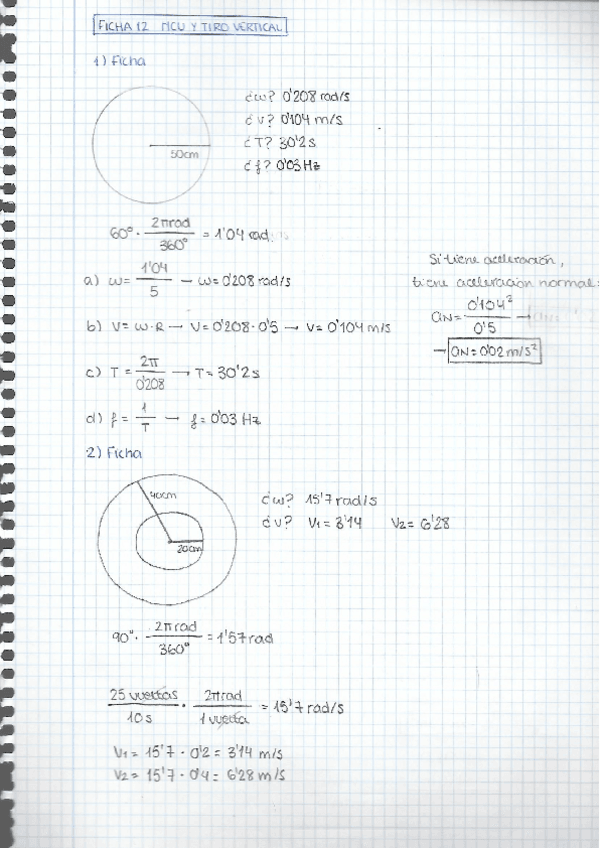 FICHA 12 MCU Y TIRO VERTICAL
1) Ficha
50cm
¿ω? 0'208 rad/s
¿v? 0'104 m/s
¿T? 30'2s
¿f? 0'03 Hz
60° · 2πrad/360° = 1'04 rad
a) ω = 1'04/5 — ω = 0'208 rad/s
b) V = ω·R → V = 0'208 · 0'5 → V = 0'104 m/s
c) T = 2π/0'208 → T = 30'2s
d) f = 1/T → f = 0'03 Hz
Si tiene aceleración,
tiene aceleración normal:
aN = 0'104²/0'5 →
→ aN = 0'02 m/s²
2) Ficha
40cm
20cm
¿ω? 15'7 rad/s
¿v? V1 = 3'14 V2 = 6'28
90° · 2π rad/360° = 1'57 rad
25 vueltas/10 s · 2π rad/1 vuelta = 15'7 rad/s
V1 = 15'7 · 0'2 = 3'14 m/s
V2 = 15'7 · 0'4 = 6'28 m/s